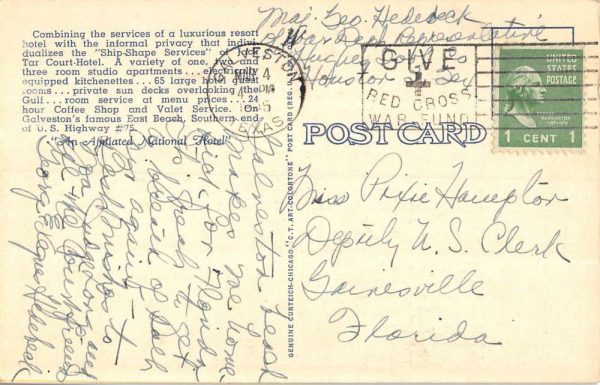 Combining the services of a luxurious resort
hotel with the informal privacy that indivi-
dualizes the "Ship-Shape Services" of Jack
Tar Court-Hotel. A variety of one, two and
three room studio apartments... electrically
equipped kitchenettes...65 large hotel guest
rooms...private sun decks overlooking the
Gulf...room service at menu prices...24
hour Coffee Shop and Valet Service. On
Galveston's famous East Beach, Southern end
of U.S. Highway #75.
"An Affiliated National Hotel"
Maj. Geo. Hedebeck
War Dept. Representative
Hughes Tool Co.
Houston Tex
TEXAS
4 PM
GIVE
RED CROSS
WAR FUND
UNITED
STATES
POSTAGE
WASHINGTON
1 CENT 1
POST CARD
GENUINE CURTEICH-CHICAGO "C.T. ART-COLORTONE" POST CARD (REG.
Miss Pixie Hampton
Deputy U.S. Clerk
Gainesville
Florida
Galveston Beach
makes me home
sick for Florida
to get
a
again.
Best wishes to
Judge Long and
all the Court friends
George &